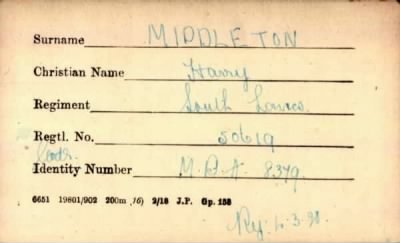 Surname MIDDLETON
Christian Name Harry
Regiment South Lancs.
Regtl. No. 50619
Identity Number M.B.A. 8379.
6651 19801/902 200m (16) 2/18 J.P. Gp. 158